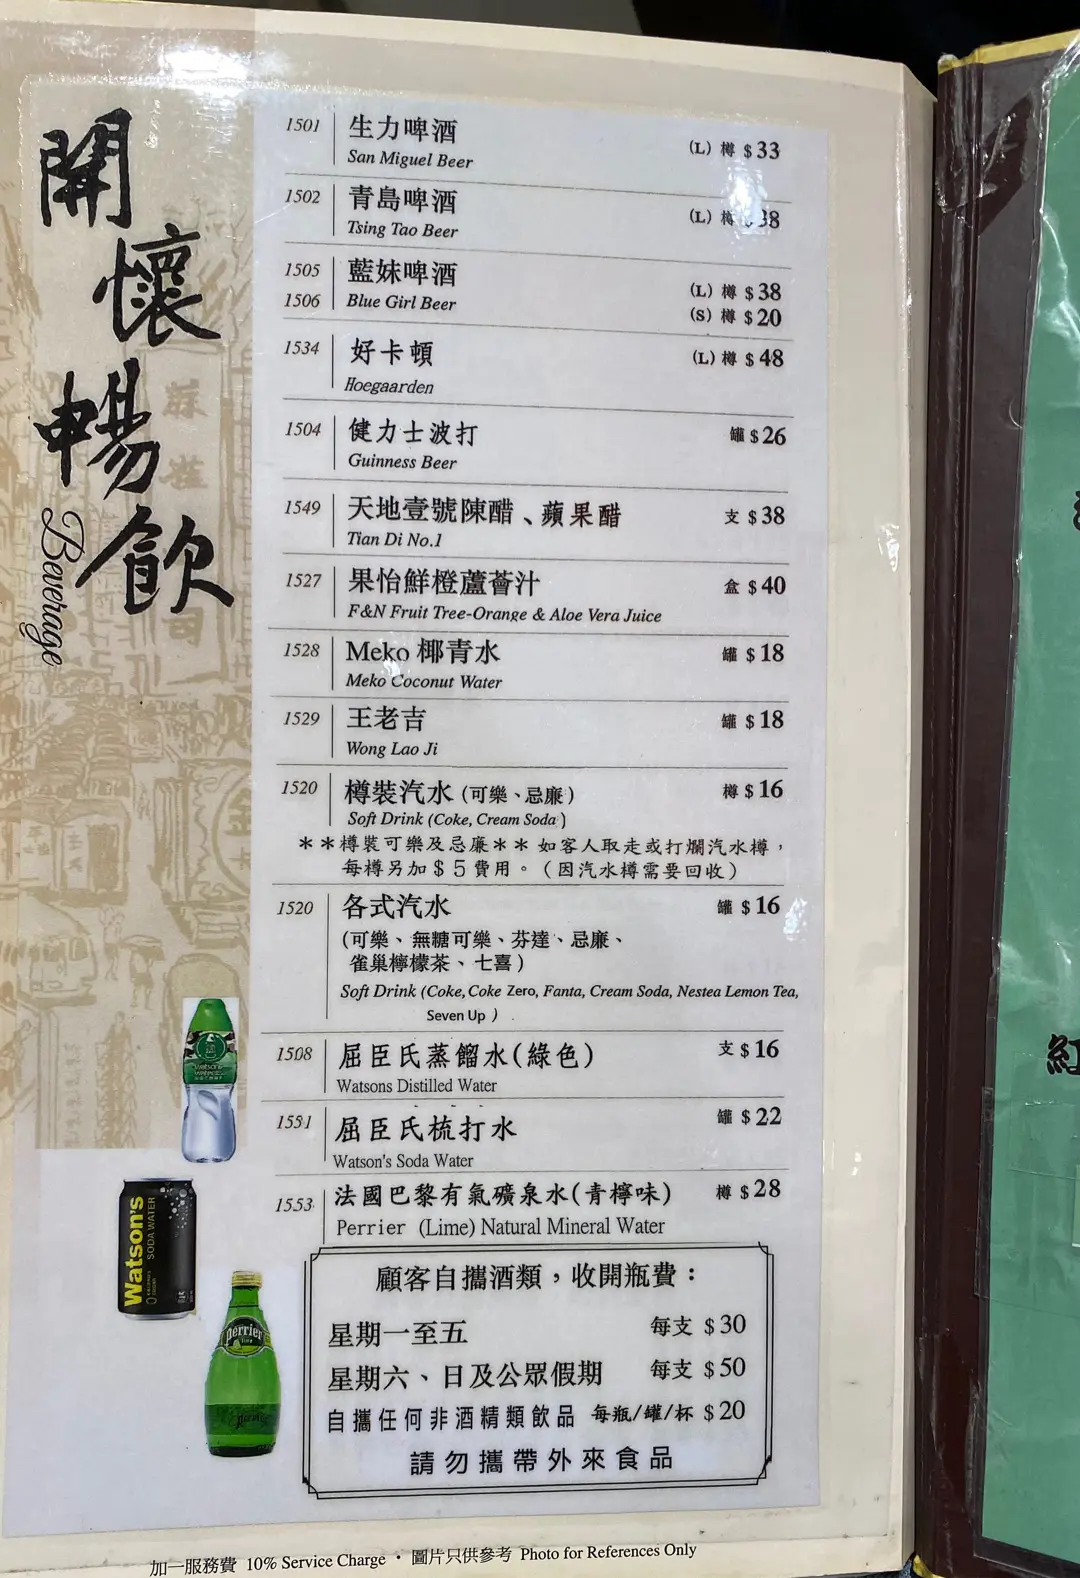 開懷暢飲
Beverage
1501 生力啤酒 (L) 樽 $33
San Miguel Beer
1502 青島啤酒 (L) 樽 38
Tsing Tao Beer
1505 藍妹啤酒 (L) 樽 $38
1506 Blue Girl Beer (S) 樽 $20
1534 好卡頓 (L) 樽 $48
Hoegaarden
1504 健力士波打 罐 $26
Guinness Beer
1549 天地壹號陳醋、蘋果醋 支 $38
Tian Di No.1
1527 果怡鮮橙蘆薈汁 盒 $40
F&N Fruit Tree-Orange & Aloe Vera Juice
1528 Meko 椰青水 罐 $18
Meko Coconut Water
1529 王老吉 罐 $18
Wong Lao Ji
1520 樽裝汽水 (可樂、忌廉) 樽 $16
Soft Drink (Coke, Cream Soda)
＊＊樽裝可樂及忌廉＊＊ 如客人取走或打爛汽水樽，
每樽另加 $ 5 費用。（因汽水樽需要回收）
1520 各式汽水 罐 $16
(可樂、無糖可樂、芬達、忌廉、
雀巢檸檬茶、七喜)
Soft Drink (Coke, Coke Zero, Fanta, Cream Soda, Nestea Lemon Tea,
Seven Up )
1508 屈臣氏蒸餾水(綠色) 支 $16
Watsons Distilled Water
1551 屈臣氏梳打水 罐 $22
Watson's Soda Water
1553 法國巴黎有氣礦泉水(青檸味) 樽 $28
Perrier (Lime) Natural Mineral Water
Watson's
SODA WATER
perrier
顧客自攜酒類，收開瓶費：
星期一至五 每支 $30
星期六、日及公眾假期 每支 $50
自攜任何非酒精類飲品 每瓶/罐/杯 $20
請勿攜帶外來食品
加一服務費 10% Service Charge • 圖片只供參考 Photo for References Only
紅